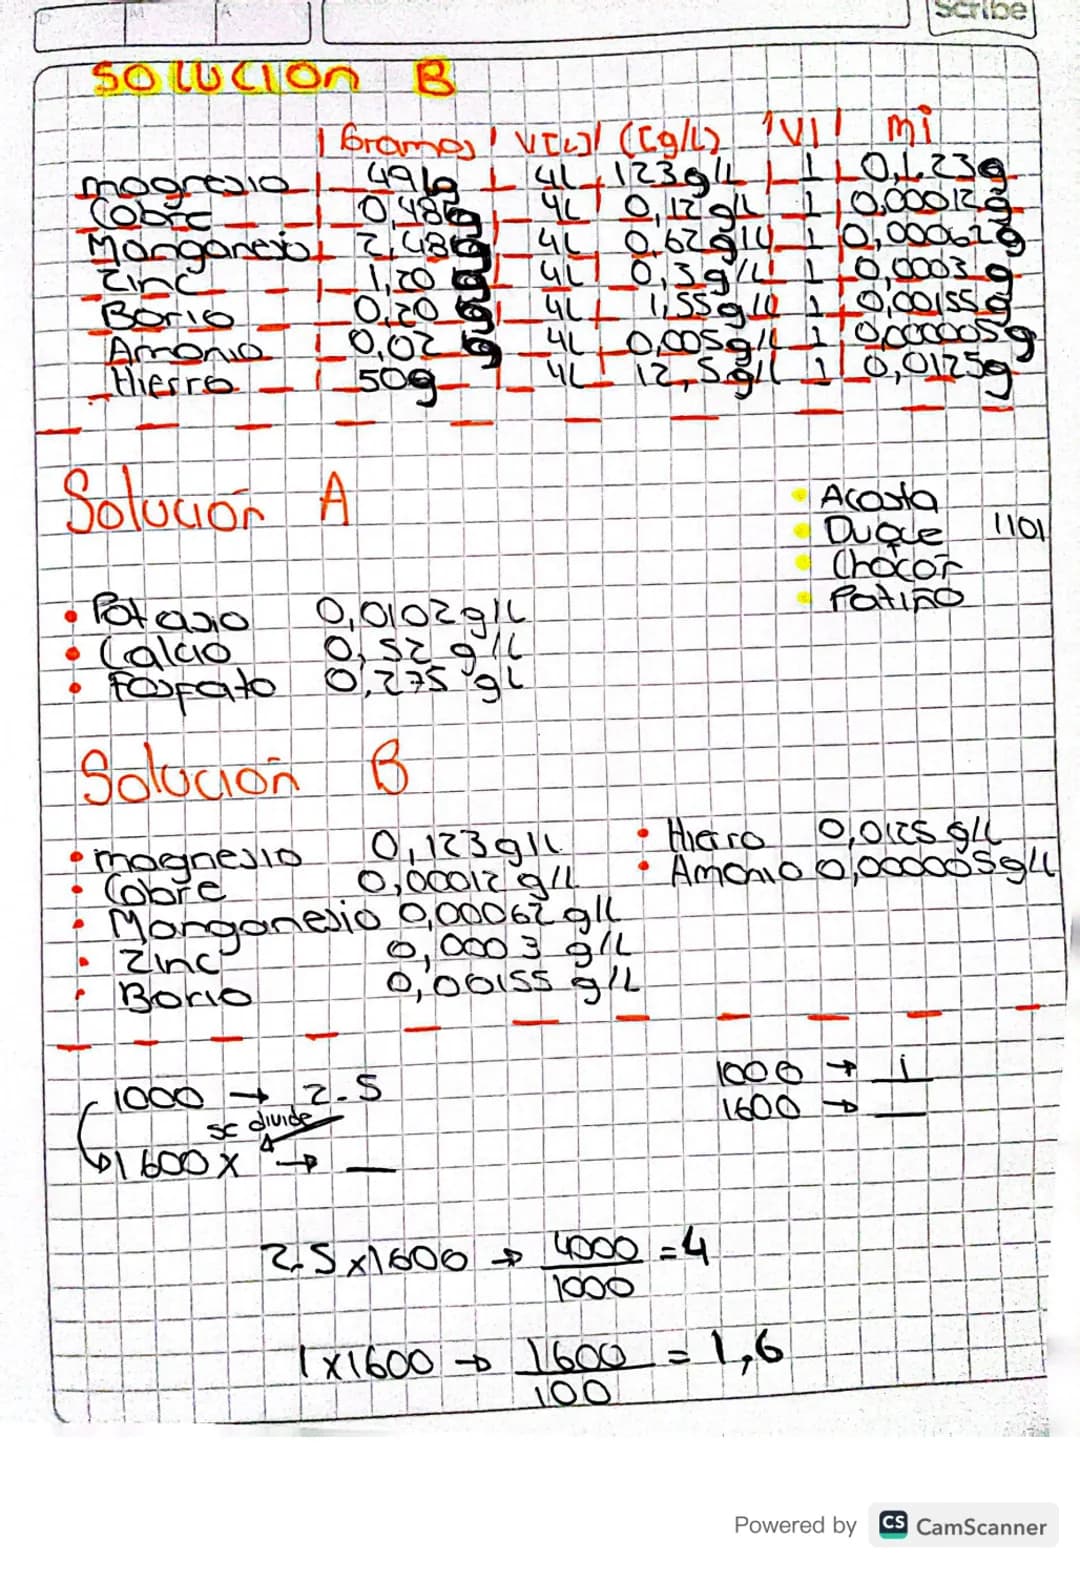 Scribe
SOLUCION B
Gramos V[L] ([g/L) V1 mi
magnesio 491g 4L 123g/L 1 0,123g
Cobre 0,48g 4L 0,12g/L 1 0,00012g
Manganesio 2,48g 4L 0,62g/L 1 0,00062g
Zinc 1,20g 4L 0,3g/L 1 0,0003g
Borio 0,20g 4L 1,55g/L 1 0,00155g
Amonio 0,02g 4L 0,005g/L 1 0,000005g
Hierro 50g 4L 12,5g/L 1 0,0125g
Solución A
• Acosta
• Duque 1101
• Chocon
• Patiño
• Potasio 0,0102g/L
• Calcio 0,52 g/L
• Fosfato 0,275 gL
Solución B
• magnesio 0,123g/L
• Cobre 0,00012 g/L
• Manganesio 0,00062 g/L
• Zinc 0,0003 g/L
• Borio 0,00155 g/L
• Hierro 0,0125 g/L
• Amonio 0,000005g/L
1000 → 2.5
se divide
1600 x → __
1000 → 1
1600 → __
2.5 x 1600 → 4000/1000 = 4
1 x 1600 → 1600/100 = 1,6
Powered by CS CamScanner